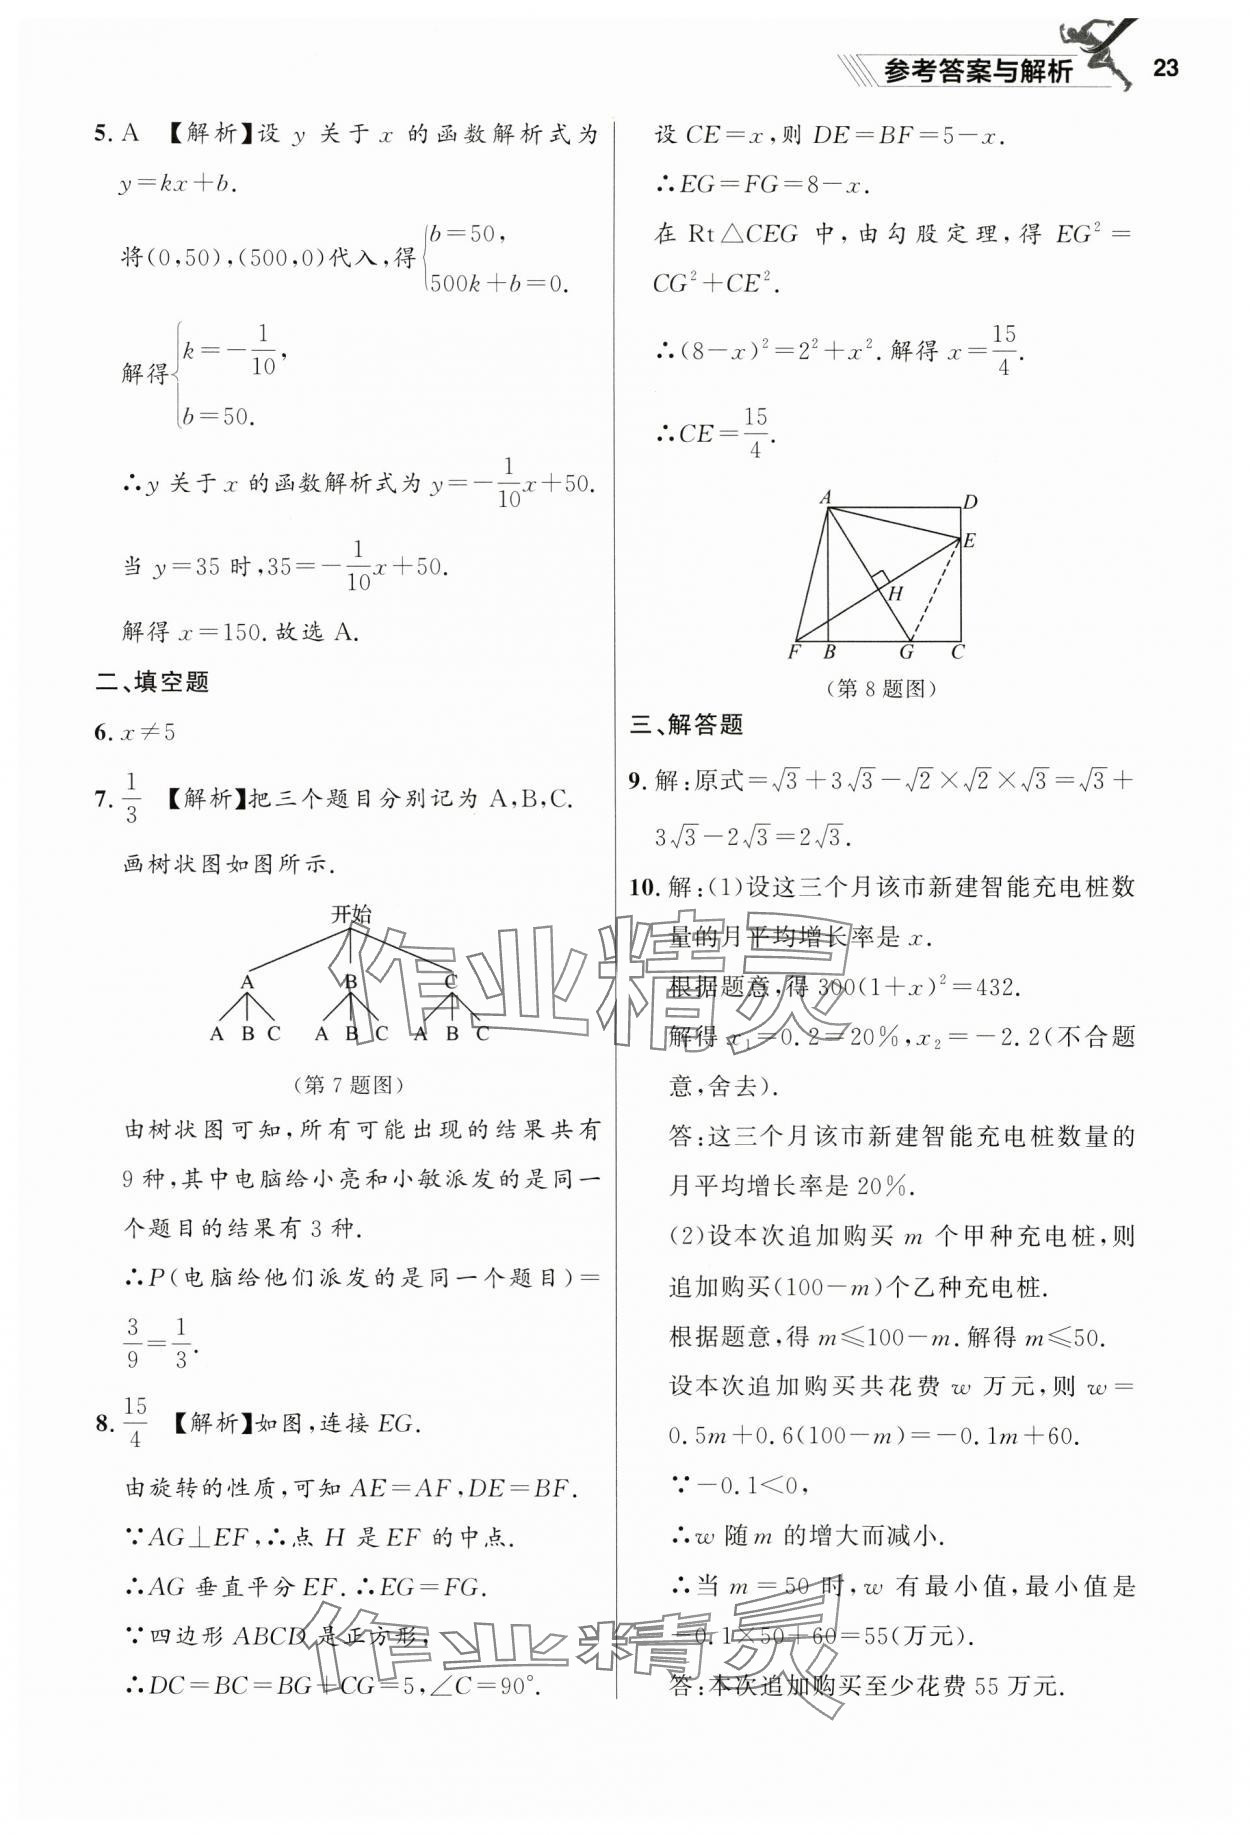 参考答案与解析 23
5. A 【解析】设 y 关于 x 的函数解析式为
y=kx+b.
将(0,50),(500,0)代入,得{b=50,
500k+b=0.
解得{k=-1/10,
b=50.
∴y 关于 x 的函数解析式为 y=-1/10x+50.
当 y=35 时,35=-1/10x+50.
解得 x=150.故选 A.
二、填空题
6. x≠5
7. 1/3 【解析】把三个题目分别记为 A,B,C.
画树状图如图所示.
开始
A B C
A B C A B C A B C
(第 7 题图)
由树状图可知,所有可能出现的结果共有
9 种,其中电脑给小亮和小敏派发的是同一
个题目的结果有 3 种.
∴P(电脑给他们派发的是同一个题目)=
3/9=1/3.
8. 15/4 【解析】如图,连接 EG.
由旋转的性质,可知 AE=AF,DE=BF.
∵AG⊥EF,∴点 H 是 EF 的中点.
∴AG 垂直平分 EF.∴EG=FG.
∵四边形 ABCD 是正方形,
∴DC=BC=BG+CG=5,∠C=90°.
设 CE=x,则 DE=BF=5-x.
∴EG=FG=8-x.
在 Rt△CEG 中,由勾股定理,得 EG²=
CG²+CE².
∴(8-x)²=2²+x².解得 x=15/4.
∴CE=15/4.
A D
E
H
F B G C
(第 8 题图)
三、解答题
9. 解:原式=√3+3√3-√2×√2×√3=√3+
3√3-2√3=2√3.
10. 解:(1)设这三个月该市新建智能充电桩数
量的月平均增长率是 x.
根据题意,得 300(1+x)²=432.
解得 x₁=0.2=20%,x₂=-2.2(不合题
意,舍去).
答:这三个月该市新建智能充电桩数量的
月平均增长率是 20%.
(2)设本次追加购买 m 个甲种充电桩,则
追加购买(100-m)个乙种充电桩.
根据题意,得 m≤100-m.解得 m≤50.
设本次追加购买共花费 w 万元,则 w=
0.5m+0.6(100-m)=-0.1m+60.
∵-0.1<0,
∴w 随 m 的增大而减小.
∴当 m=50 时,w 有最小值,最小值是
-0.1×50+60=55(万元).
答:本次追加购买至少花费 55 万元.
作业精灵
作业精灵